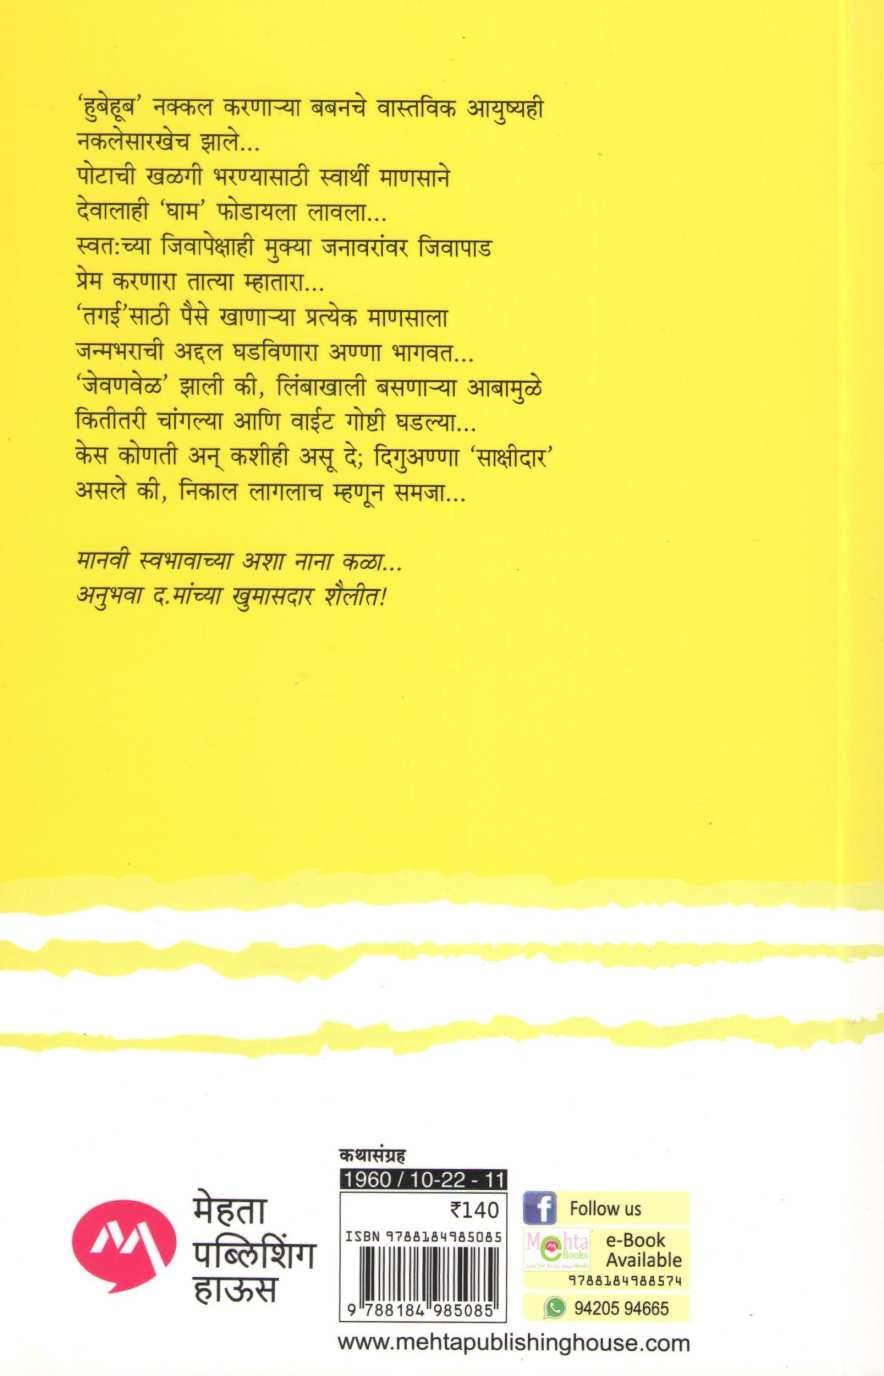 ‘हुबेहूब’ नक्कल करणाऱ्या बबनचे वास्तविक आयुष्यही
नकलेसारखेच झाले...
पोटाची खळगी भरण्यासाठी स्वार्थी माणसाने
देवालाही ‘घाम’ फोडायला लावला...
स्वतःच्या जिवापेक्षाही मुक्या जनावरांवर जिवापाड
प्रेम करणारा तात्या म्हातारा...
‘तगई’साठी पैसे खाणाऱ्या प्रत्येक माणसाला
जन्मभराची अद्दल घडविणारा अण्णा भागवत...
‘जेवणवेळ’ झाली की, लिंबाखाली बसणाऱ्या आबामुळे
कितीतरी चांगल्या आणि वाईट गोष्टी घडल्या...
केस कोणती अन् कशीही असू दे; दिगुअण्णा ‘साक्षीदार’
असले की, निकाल लागलाच म्हणून समजा...
मानवी स्वभावाच्या अशा नाना कळा...
अनुभवा द.मांच्या खुमासदार शैलीत!
मेहता
पब्लिशिंग
हाऊस
कथासंग्रह
1960 / 10-22 - 11
₹140
ISBN 9788184985085
9 788184 985085
f Follow us
Mehta
Books
e-Book
Available
9788184988574
94205 94665
www.mehtapublishinghouse.com